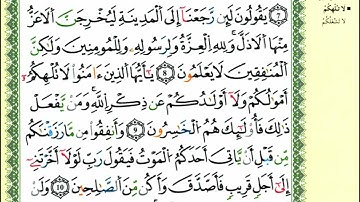 ۷ يَقُولُونَ لَئِن رَّجَعْنَآ إِلَى الْمَدِينَةِ لَيُخْرِجَنَّ الْأَعَزُّ
مِنْهَا الْأَذَلَّ وَلِلَّهِ الْعِزَّةُ وَلِرَسُولِهِ وَلِلْمُومِنِينَ وَلَٰكِنَّ
الْمُنَٰفِقِينَ لَا يَعْلَمُونَ ۸ يَٰٓأَيُّهَا الَّذِينَ ءَامَنُوا لَا تُلْهِكُمُ
أَمْوَٰلُكُمْ وَلَآ أَوْلَٰدُكُمْ عَن ذِكْرِ اللَّهِ وَمَن يَفْعَلْ
ذَٰلِكَ فَأُوْلَٰٓئِكَ هُمُ الْخَٰسِرُونَ ۹ وَأَنفِقُوا مِن مَّا رَزَقْنَٰكُم
مِّن قَبْلِ أَن يَّاتِيَ أَحَدَكُمُ الْمَوْتُ فَيَقُولَ رَبِّ لَوْلَآ أَخَّرْتَنِي
إِلَىٰٓ أَجَلٍ قَرِيبٍ فَأَصَّدَّقَ وَأَكُن مِّنَ الصَّٰلِحِينَ ۱۰ وَلَنْ
• لا تُلْهِكُمْ
لا تَشْغَلْكُمْ